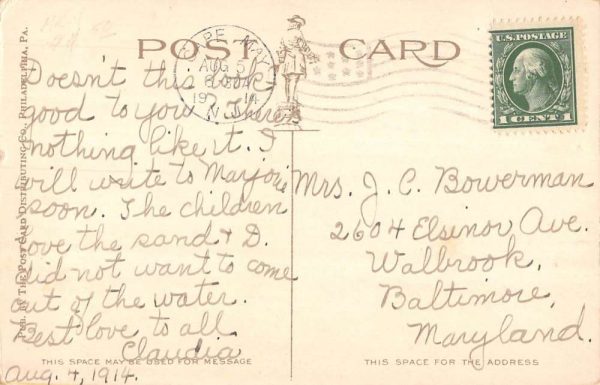 POST CARD
CAPE MAY
AUG 5
19 14
N.J.
U.S. POSTAGE
1 CENT 1
PUB. BY THE POST CARD DISTRIBUTING CO., PHILADELPHIA, PA.
Doesn't this look
good to you? There's
nothing like it. I
will write to Marjorie
soon. The children
love the sand & D.
did not want to come
out of the water.
Best love to all
Claudia
Aug. 4, 1914.
Mrs. J. C. Bowerman
2604 Elsinor Ave.
Walbrook,
Baltimore,
Maryland.
THIS SPACE MAY BE USED FOR MESSAGE
THIS SPACE IS FOR THE ADDRESS